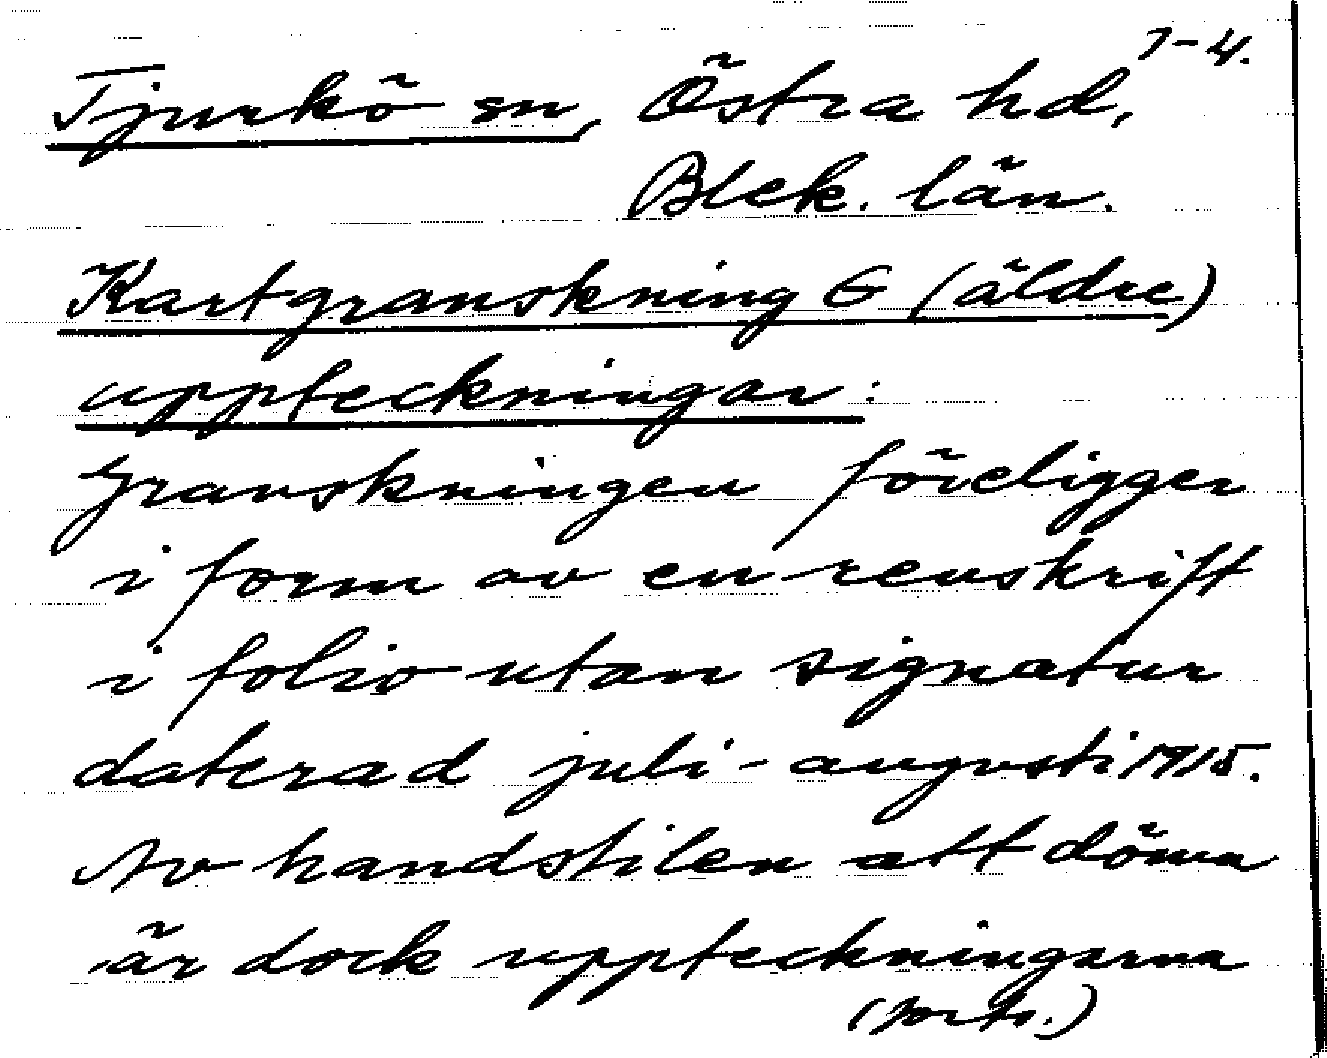 7-4.
Tjurkö sn, Östra hd,
Blek. län.
Kartgranskning G (äldre)
uppteckningar:
Granskningen föreligger
i form av en renskrift
i folio utan signatur
daterad juli-augusti 1915.
Av handstilen att döma
är dock uppteckningarna
(forts.)